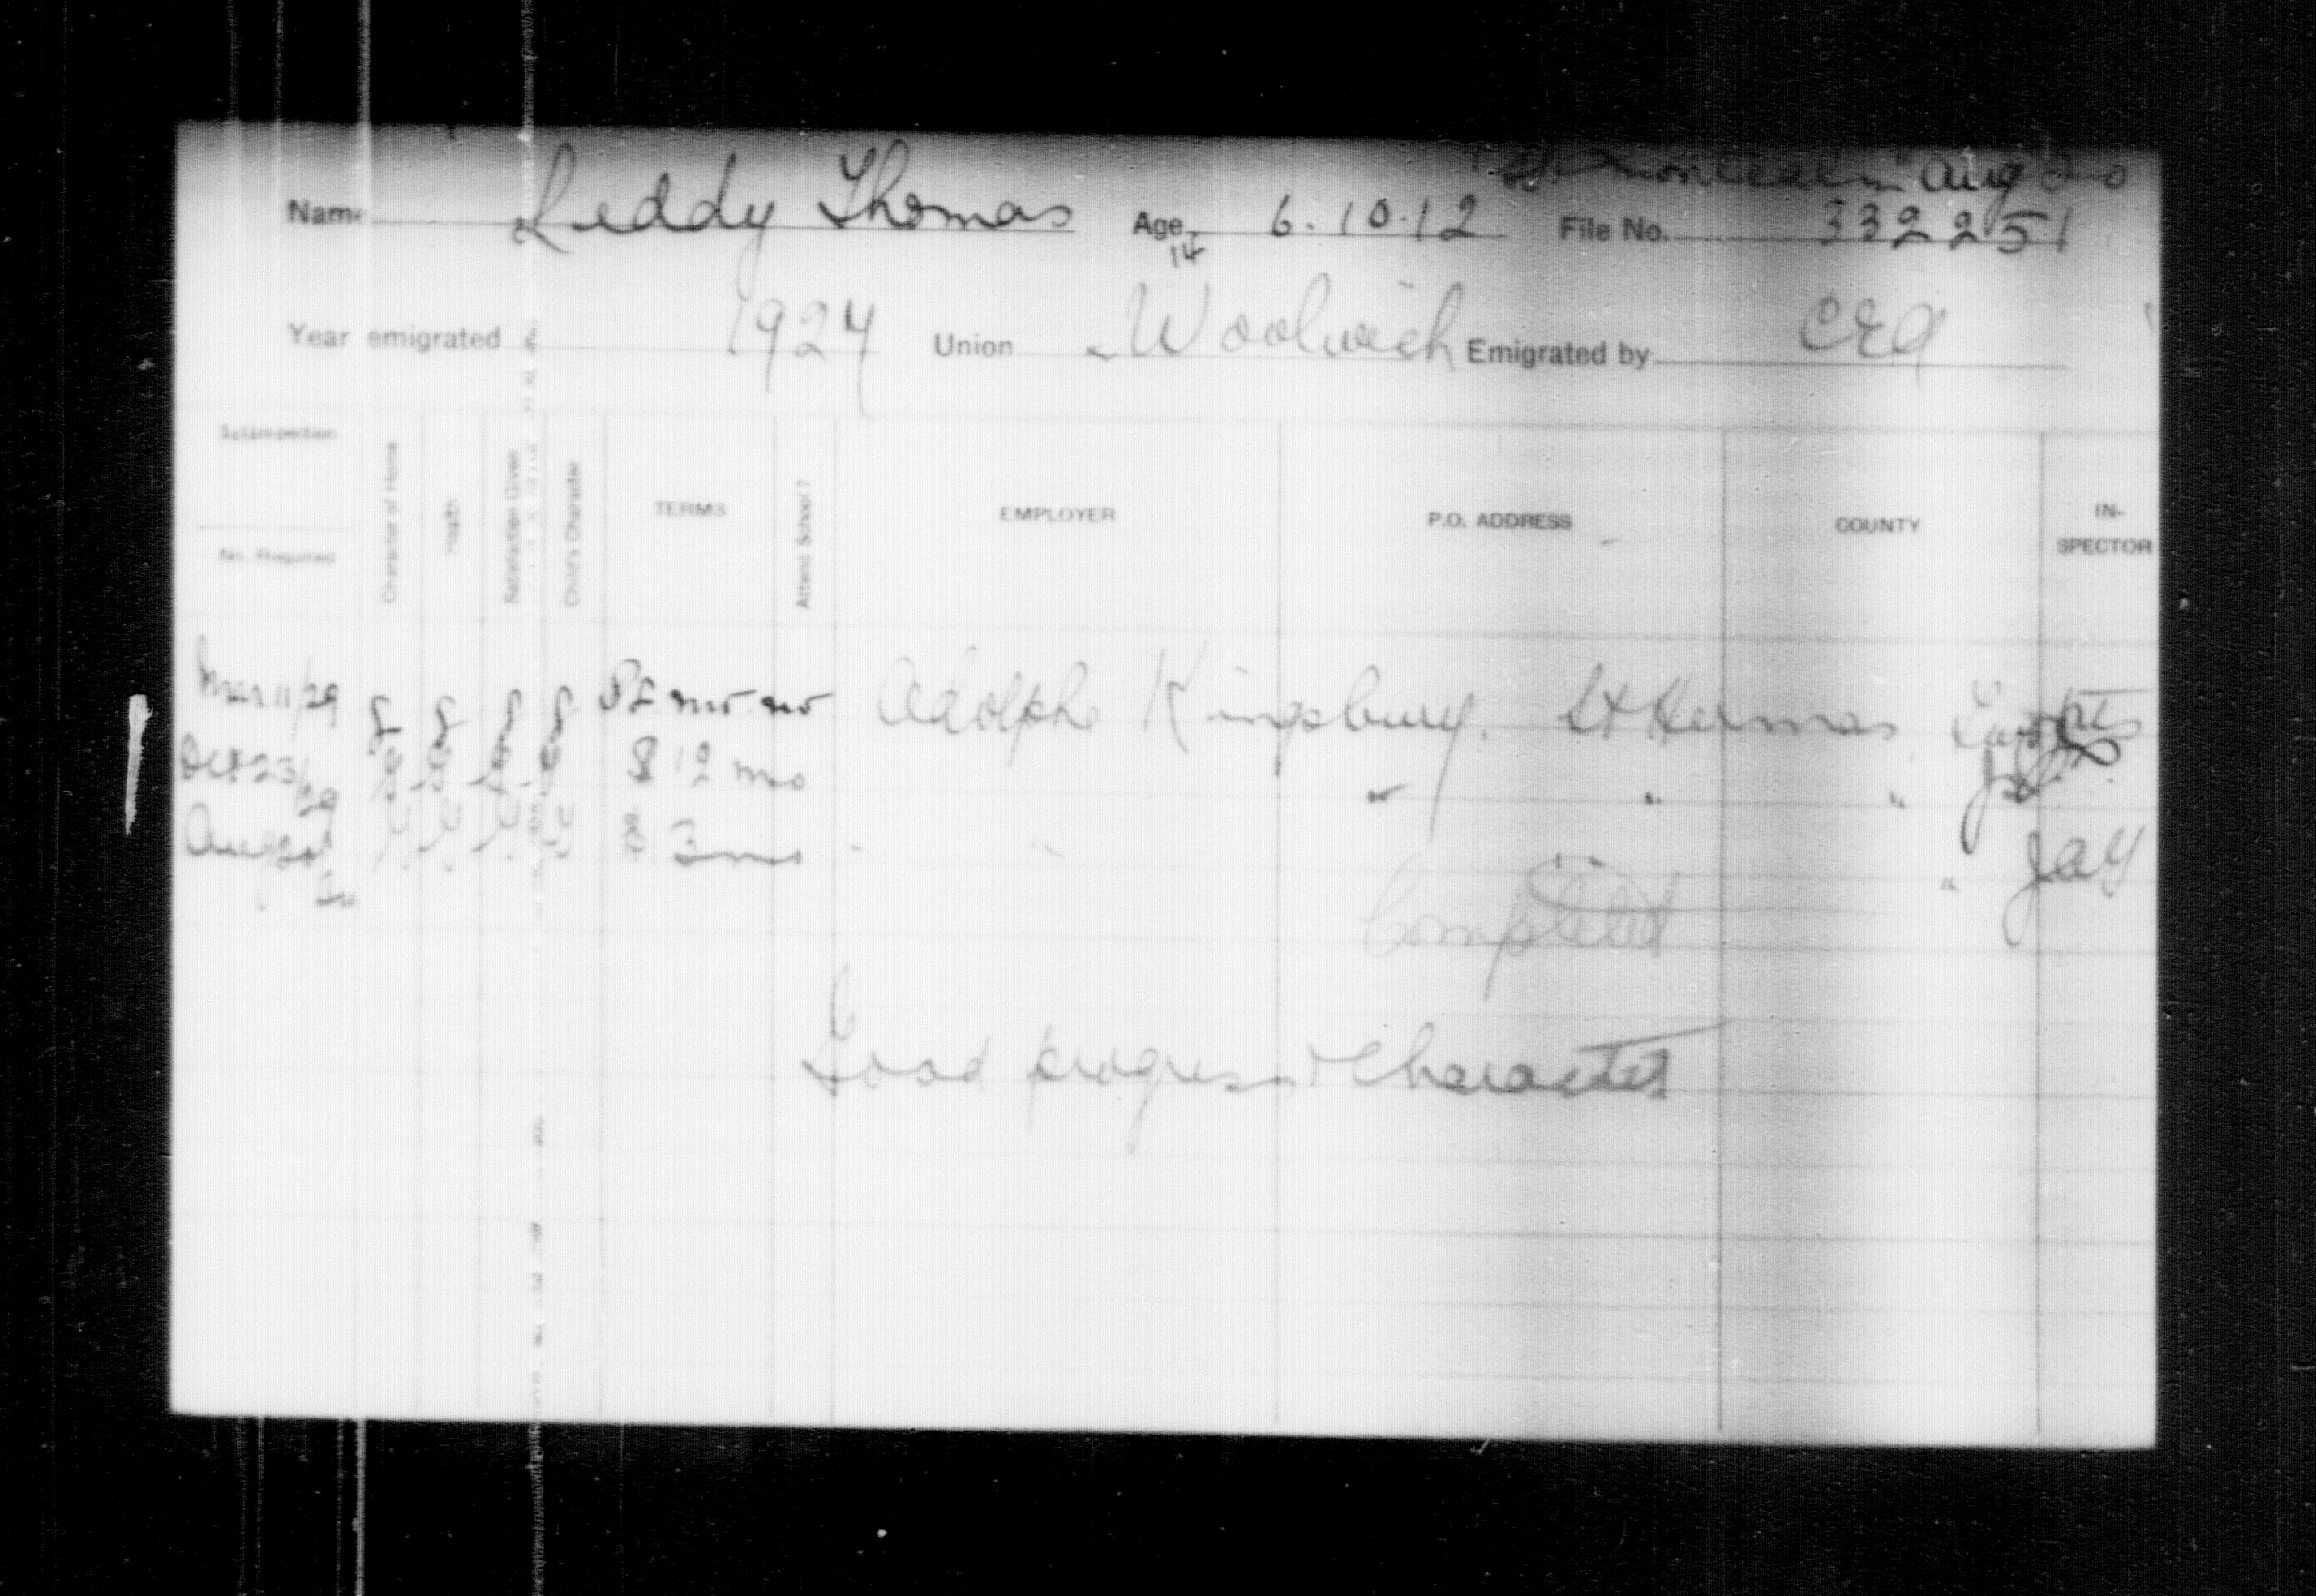 Aug 20
Name Leddy Thomas Age 6.10.12 File No. 332251
14
Year emigrated 1924 Union Woolwich Emigrated by CEA
1st Inspection
No. Required
Character of Home
Health
Satisfaction Given
Child's Character
TERMS
Attend School?
EMPLOYER
P.O. ADDRESS
COUNTY
IN-
SPECTOR
Mar 11/29 g g g g no Adolphe Kingsbury. St Hermas
Oct 23/29 G G G G 12 mo " " "
Aug G G G G 3 mo " " " JAY
Completed
Good progress & Character